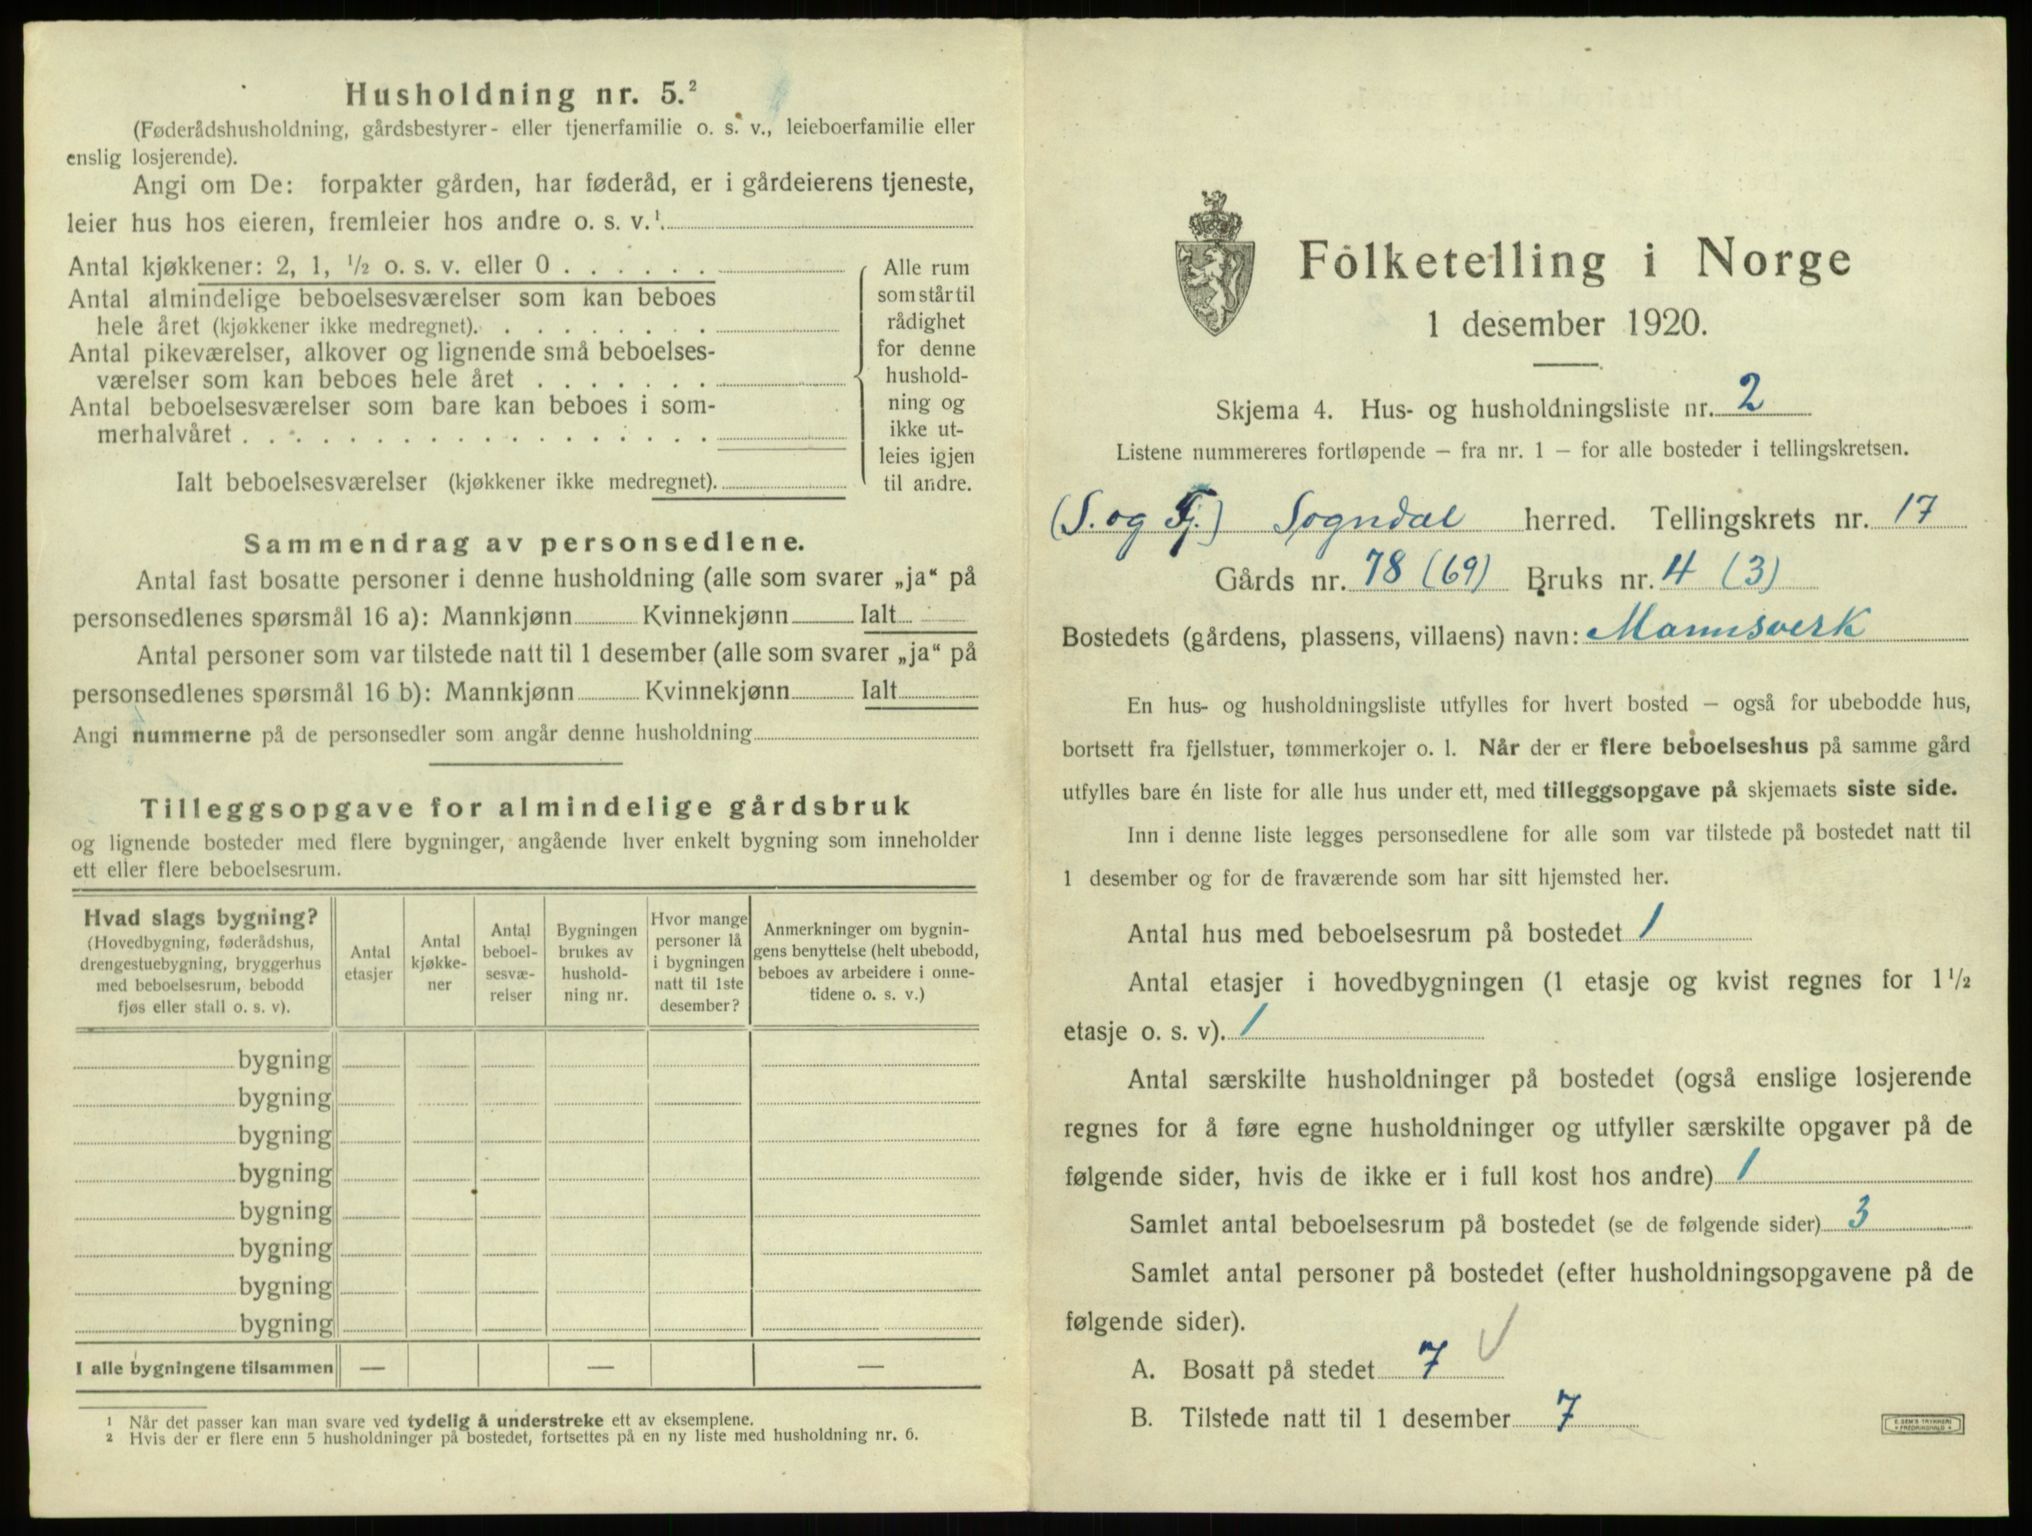 Husholdning nr. 5.²
(Føderådshusholdning, gårdsbestyrer- eller tjenerfamilie o. s. v., leieboerfamilie eller
enslig losjerende).
Angi om De: forpakter gården, har føderåd, er i gårdeierens tjeneste,
leier hus hos eieren, fremleier hos andre o. s. v.¹
Antal kjøkkener: 2, 1, ½ o. s. v. eller 0 . . . . . .
Antal almindelige beboelsesværelser som kan beboes
hele året (kjøkkener ikke medregnet). . . . . . . . .
Antal pikeværelser, alkover og lignende små beboelses-
værelser som kan beboes hele året . . . . . . .
Antal beboelsesværelser som bare kan beboes i som-
merhalvåret . . . . . . . . . . . . . . . . . .
Ialt beboelsesværelser (kjøkkener ikke medregnet).
Alle rum
som står til
rådighet
for denne
hushold-
ning og
ikke ut-
leies igjen
til andre.
Sammendrag av personsedlene.
Antal fast bosatte personer i denne husholdning (alle som svarer „ja“ på
personsedlenes spørsmål 16 a): Mannkjønn Kvinnekjønn Ialt
Antal personer som var tilstede natt til 1 desember (alle som svarer „ja“ på
personsedlenes spørsmål 16 b): Mannkjønn Kvinnekjønn Ialt
Angi nummerne på de personsedler som angår denne husholdning
Tilleggsopgave for almindelige gårdsbruk
og lignende bosteder med flere bygninger, angående hver enkelt bygning som inneholder
ett eller flere beboelsesrum.
Hvad slags bygning?
(Hovedbygning, føderådshus,
drengestuebygning, bryggerhus
med beboelsesrum, bebodd
fjøs eller stall o. s. v).
Antal
etasjer
Antal
kjøkke-
ner
Antal
beboel-
sesvæ-
relser
Bygningen
brukes av
hushold-
ning nr.
Hvor mange
personer lå
i bygningen
natt til 1ste
desember?
Anmerkninger om bygnin-
gens benyttelse (helt ubebodd,
beboes av arbeidere i onne-
tidene o. s. v.)
bygning
bygning
bygning
bygning
bygning
bygning
bygning
bygning
I alle bygningene tilsammen — — —
¹ Når det passer kan man svare ved tydelig å understreke ett av eksemplene.
² Hvis der er flere enn 5 husholdninger på bostedet, fortsettes på en ny liste med husholdning nr. 6.
Folketelling i Norge
1 desember 1920.
Skjema 4. Hus- og husholdningsliste nr. 2
Listene nummereres fortløpende – fra nr. 1 – for alle bosteder i tellingskretsen.
(S. og Fj.) Sogndal herred. Tellingskrets nr. 17
Gårds nr. 78 (69) Bruks nr. 4 (3)
Bostedets (gårdens, plassens, villaens) navn: Mannsverk
En hus- og husholdningsliste utfylles for hvert bosted – også for ubebodde hus,
bortsett fra fjellstuer, tømmerkojer o. l. Når der er flere beboelseshus på samme gård
utfylles bare én liste for alle hus under ett, med tilleggsopgave på skjemaets siste side.
Inn i denne liste legges personsedlene for alle som var tilstede på bostedet natt til
1 desember og for de fraværende som har sitt hjemsted her.
Antal hus med beboelsesrum på bostedet 1
Antal etasjer i hovedbygningen (1 etasje og kvist regnes for 1 ½
etasje o. s. v). 1
Antal særskilte husholdninger på bostedet (også enslige losjerende
regnes for å føre egne husholdninger og utfyller særskilte opgaver på de
følgende sider, hvis de ikke er i full kost hos andre) 1
Samlet antal beboelsesrum på bostedet (se de følgende sider) 3
Samlet antal personer på bostedet (efter husholdningsopgavene på de
følgende sider).
A. Bosatt på stedet 7
B. Tilstede natt til 1 desember 7
E. SEM'S TRYKKERI
FREDRIKSHALD